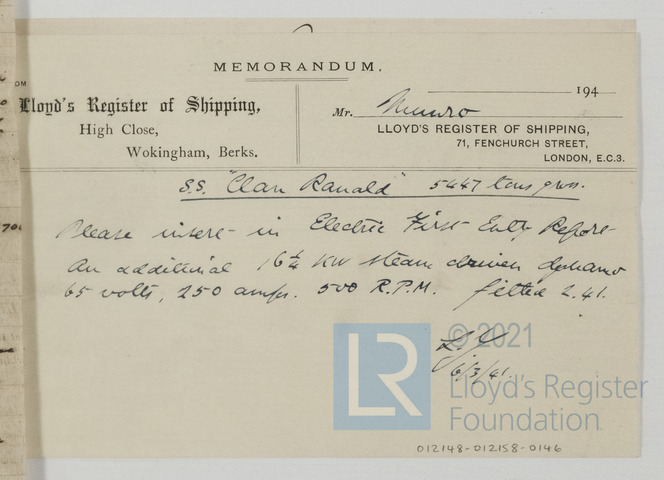 MEMORANDUM.
OM
Lloyd's Register of Shipping,
High Close,
Wokingham, Berks.
194
Mr. Munro
LLOYD'S REGISTER OF SHIPPING,
71, FENCHURCH STREET,
LONDON, E.C.3.
S.S. "Clan Ranald" 5447 tons gross.
Please insert in Electric First Entry Report
An additional 16 1/4 KW steam driven dynamo
65 volts, 250 amps. 500 R.P.M. fitted 2.41.
6/3/41.
LR
© 2021
Lloyd's Register
Foundation
012148-012158-0146